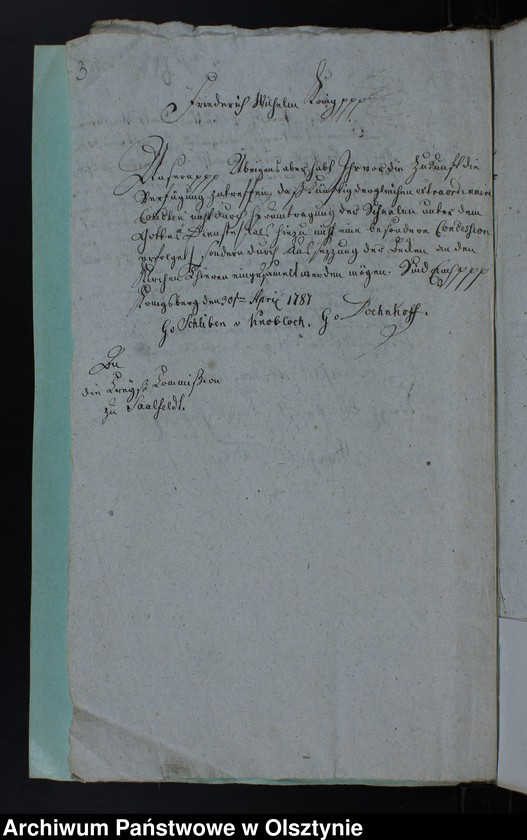 3
Friederich Wilhelm König ppp
Unsern ppp Übrigens aber habt Ihr vor die Zukunft die
Verfügung zutreffen, daß künftig dergleichen extraordinaire
Collecten nicht durch Herumtragung der Schaalen unter dem
Gottes Dienste, als hiezu nicht eine besondere Concession
erfolget, sondern durch Aussezzung der Becken an den
Kirchen Thüren eingesamelt werden mögen. Sind Euch ppp
Königsberg den 30ten April 1787
G v Schlieben v Knobloch. G v Doenhoff.
An
die Creyß Commission
zu Saalfeldt.
Archiwum Państwowe w Olsztynie